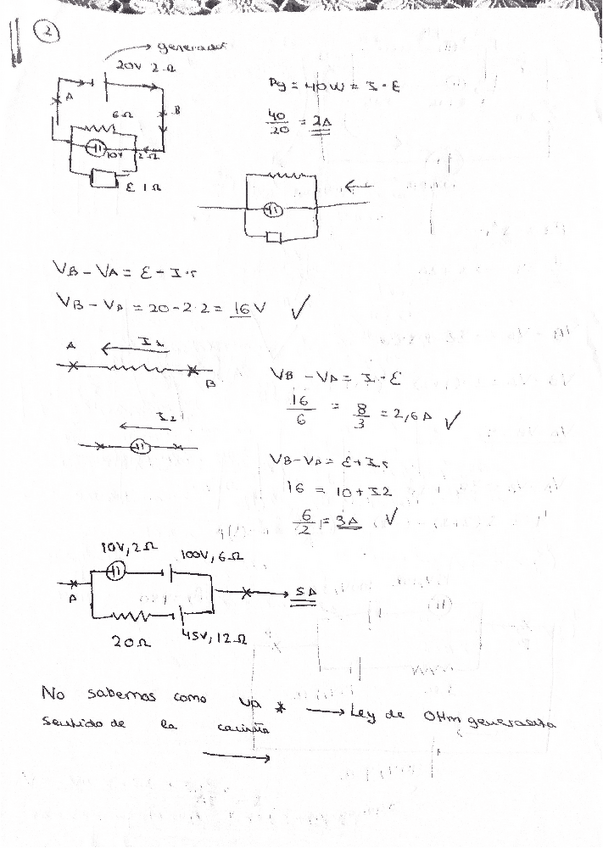 2
generador
20V 2Ω
A
B
6Ω
10V 2Ω
ε 1Ω
Pg = 40W = I · ε
40/20 = 2A
VB - VA = ε - I·r
VB - VA = 20 - 2·2 = 16V ✓
A I1 B
VB - VA = I · ε
16/6 = 8/3 = 2,6A ✓
I2
VB - VA = ε + I·r
16 = 10 + I2
6/2 = 3A ✓
10V, 2Ω
100V, 6Ω
A
5A
20Ω
45V, 12Ω
No sabemos como va * → Ley de OHm
sentido de la